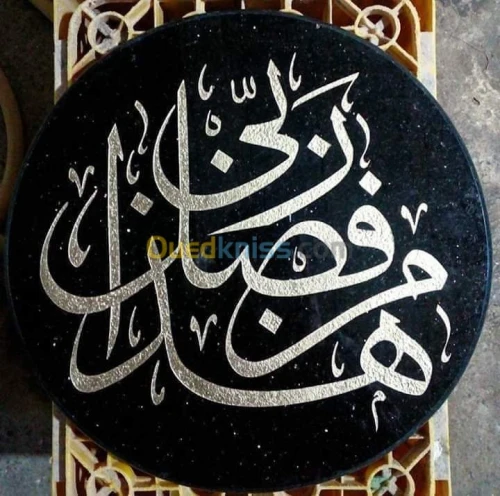 هذا من فضل ربي
Ouedkniss.com